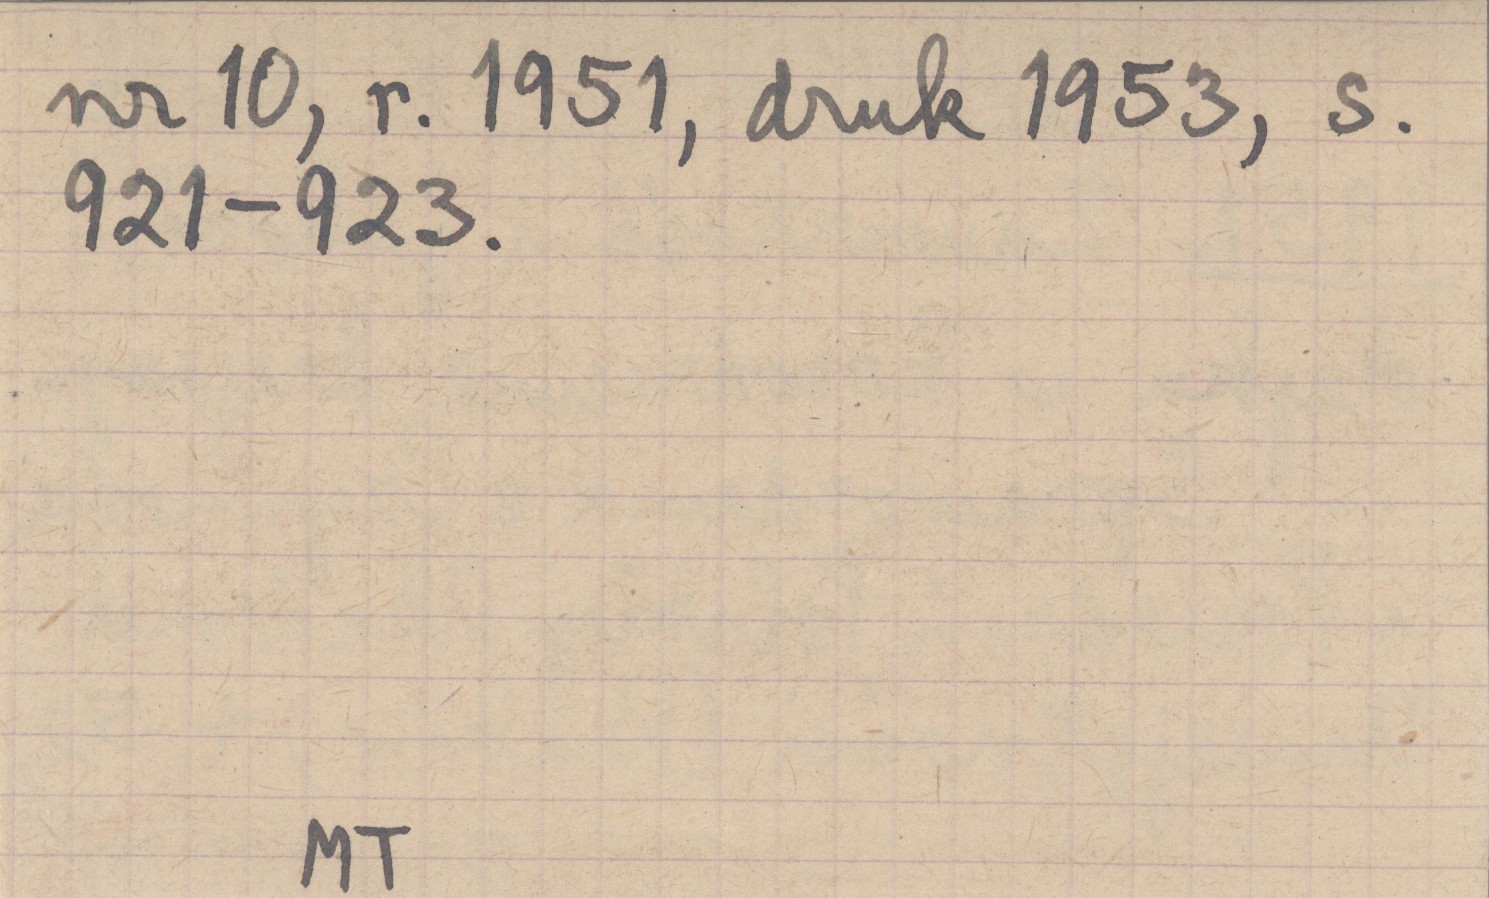 nr 10, r. 1951, druk 1953, s.
921-923.
MT